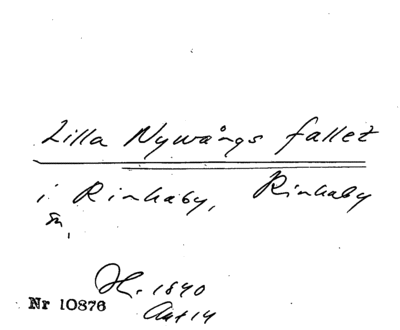 Lilla Nywångs fallet
i Rinkaby, Rinkaby
sn,
H. 1840
Akt 14
Nr 10876